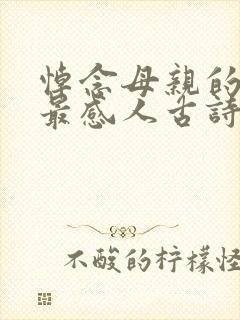 悼念母親的
最感人古詩
不酸的柠檬怪